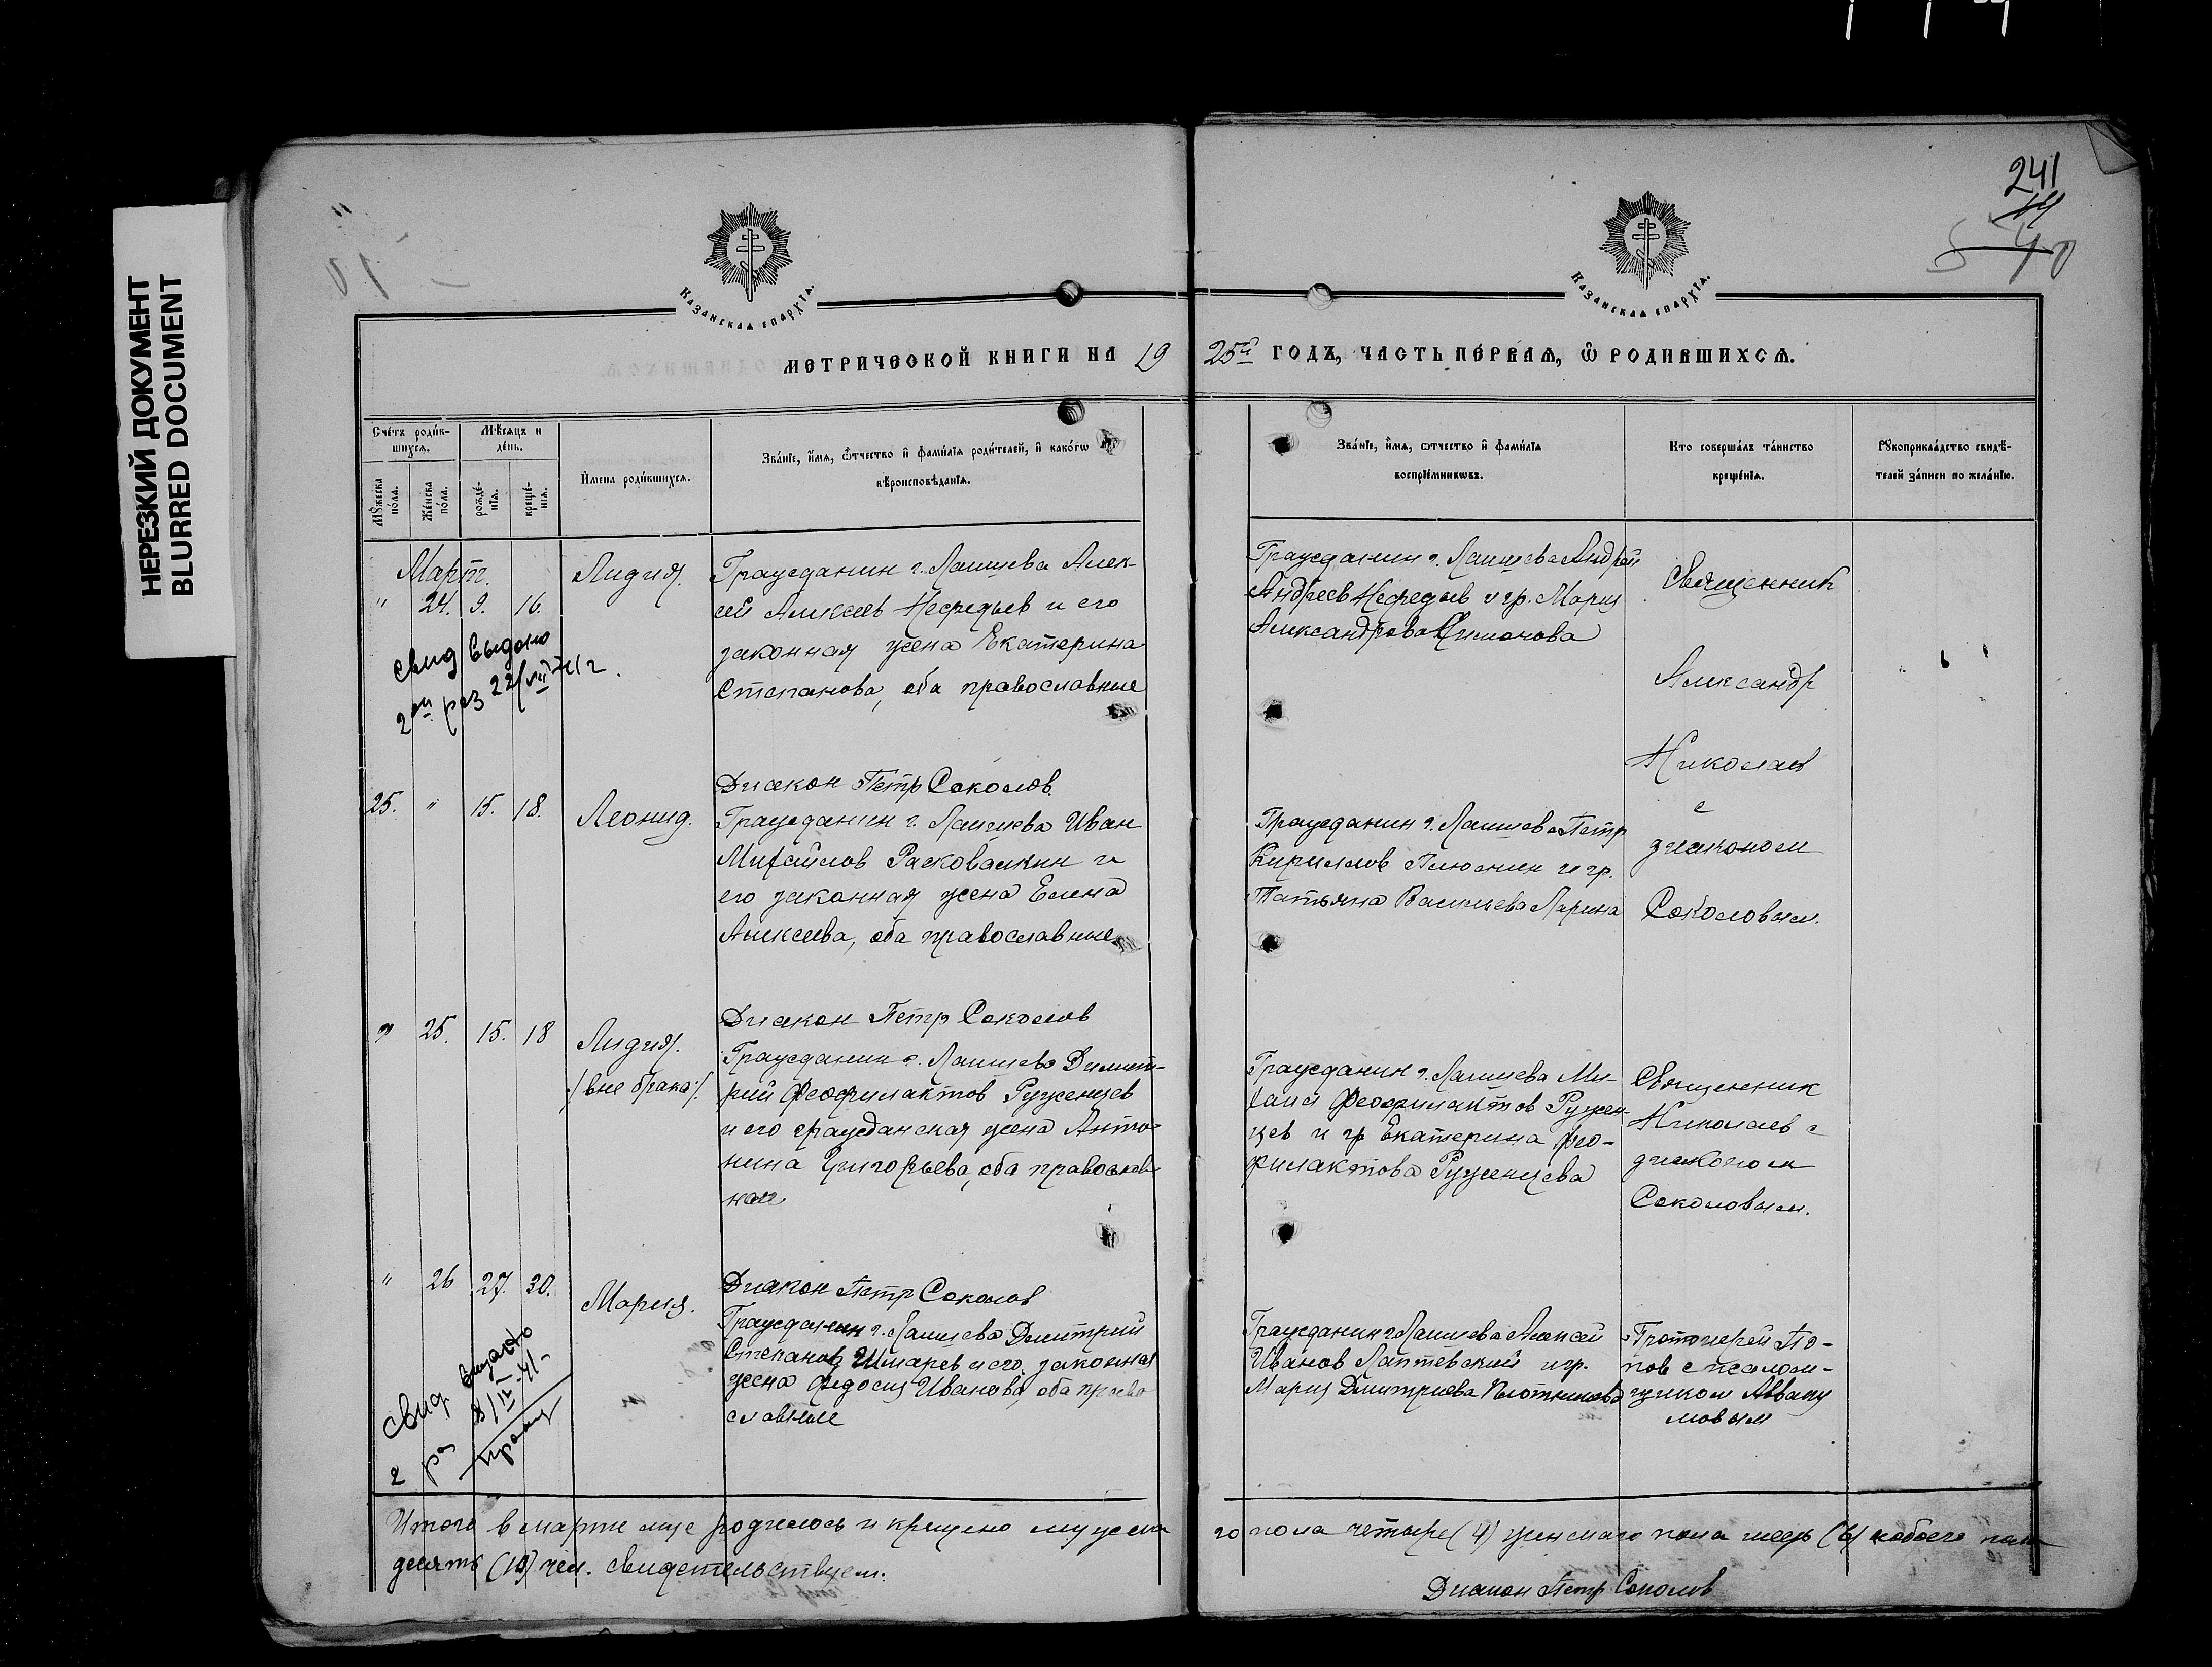 НЕРЕЗКИЙ ДОКУМЕНТ
BLURRED DOCUMENT
241
КАЗАНСКАЯ ЕПАРХІЯ.
КАЗАНСКАЯ ЕПАРХІЯ.
МЕТРИЧЕСКОЙ КНИГИ НА 19 25й ГОДЪ, ЧАСТЬ ПЕРВАЯ, Ѡ РОДИВШИХСЯ.
Счетъ родив-
шихся.
Мѣсяцъ и
день.
Мꙋжеска
пола.
Женска
пола.
рожде-
нія.
креще-
нія.
Имена родившихся.
Званіе, имя, ѿчество и фамилія родителей, и какогѡ
вѣроисповѣданія.
Званіе, имя, ѿчество и фамилія
воспріемникѡвъ.
Кто совершалъ таинство
крещенія.
Рꙋкоприкладство свидѣ-
телей записи по желанію.
Март.
" 24. 9. 16.
свид выдано
2ой раз 22/VII 41 г.
Лидия.
Гражданин г. Лаишева Алек-
сей Алексеев Нефедьев и его
законная жена Екатерина
Степанова, оба православные
Гражданин г. Лаишева Андрей
Андреев Нефедьев и гр. Мария
Александрова
Священник
Александр
Николаев
с
диаконом
Соколовым.
Диакон Петр Соколов.
25. " 15. 18.
Леонид.
Гражданин г. Лаишева Иван
Михайлов и
его законная жена Елена
Алексеева, оба православные
Гражданин г. Лаишева Петр
Кириллов и гр.
Татьяна Васильева Ларина
Диакон Петр Соколов
" 25. 15. 18
Лидия.
/вне брака/.
Гражданин г. Лаишева Димит-
рий Феофилактов Руженцев
и его гражданская жена Анто-
нина Григорьева, оба православ-
ные
Гражданин г. Лаишева Ми-
хаил Феофилактов Ружен-
цев и гр Екатерина Фео-
филактова Руженцева
Священник
Николаев с
диаконом
Соколовым.
Диакон Петр Соколов
" 26 27. 30.
свид выдано
2 раз IV 41
Мария.
Гражданин г. Лаишева Дмитрий
Степанов Шмарев и его законная
жена Федосия Иванова, оба право
славные
Гражданин г. Лаишева Алексей
Иванов Лаптевский и гр.
Мария Дмитриева Плотникова
Протоиерей По-
пов с псалом-
щиком Авваку
мовым
Итого в марте м-це родилось и крещено мужска го пола четыре (4) женскаго пола шесть (6) и обоего пола
десять (10) чел. свидетельствуем.
Диакон Петр Соколов